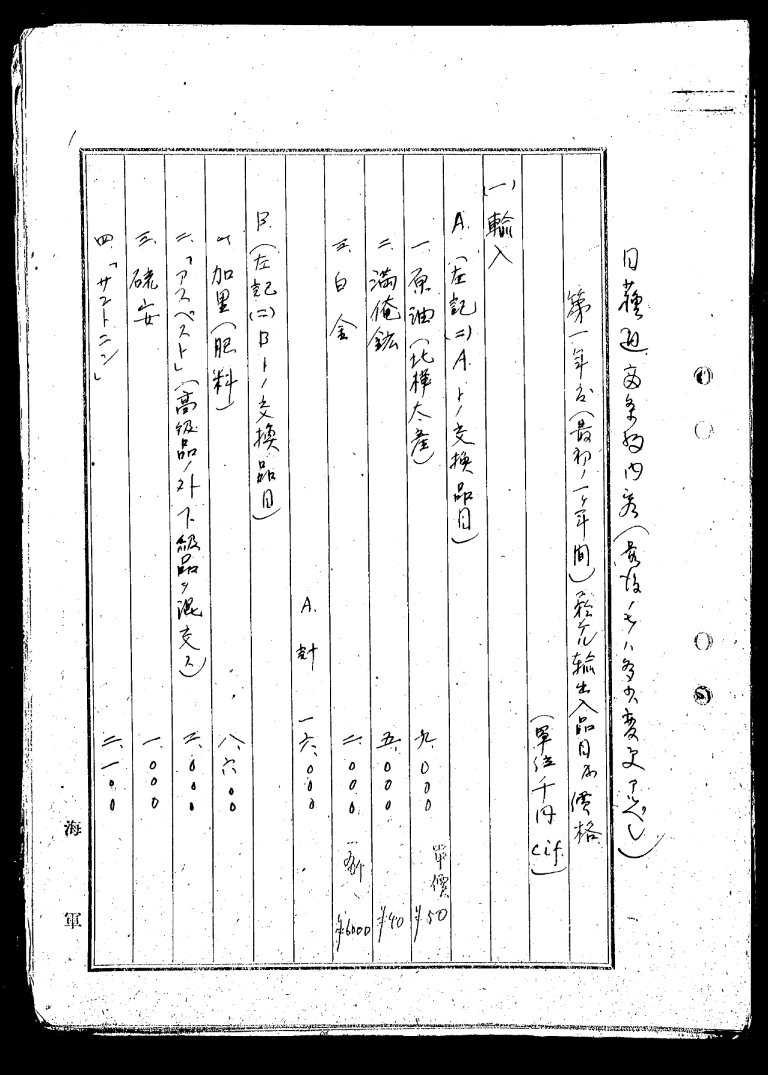 日蘇通商条約内容(最後ノモノハ多少変更アルベシ)
第一年度(最初ノ一ヶ年間)輸出入品目及價格
(單位千円 cif)
(一)輸入
A.(左記(二)A.トノ交換品目)
一、原油(北樺太産) 九、〇〇〇 單價 ¥50
二、満俺鉱 五、〇〇〇 ¥40
三、白金 二、〇〇〇 ¥6000
A.計 一六、〇〇〇
B.(左記(二)Bトノ交換品目)
一、加里(肥料) 八、六〇〇
二、「アスベスト」(高級品ノ外下級品ヲ混交ス) 三、〇〇〇
三、硫安 一、〇〇〇
四、「サントニン」 二、一〇〇
海軍